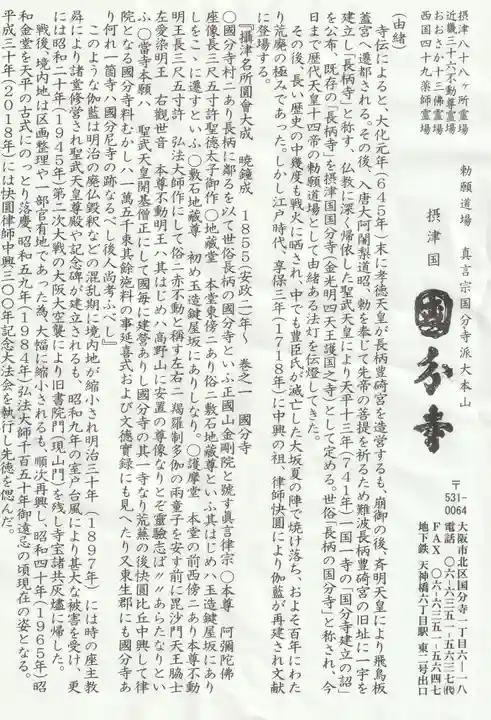 摂津八十八ヶ所霊場
近畿三十六不動尊霊場
おおさか十三佛霊場
西国四十九薬師霊場
勅願道場 真言宗国分寺派大本山
摂津国
國分寺
〒531-0064
大阪市北区国分寺一丁目六ー一八
電話 〇六ー六三五一ー五六三七(代)
FAX 〇六ー六三五一ー五六四七
地下鉄 天神橋六丁目駅 東二号出口
(由緒)
寺伝によると、大化元年(645年)末に孝徳天皇が長柄豊碕宮を造営するも、崩御の後、斉明天皇により飛鳥板
蓋宮へ遷都される。その後、入唐大阿闍梨道昭、勅を奉じて先帝の菩提を祈るため難波長柄豊碕宮の旧址に一宇を
建立し「長柄寺」と称す、仏教に深く帰依した聖武天皇により天平十三年(741年)一国一寺の「国分寺建立の詔」
を公布、既存の「長柄寺」を摂津国国分寺(金光明四天王護国之寺)として定める。世俗「長柄の国分寺」と称され、今
日まで歴代天皇十四帝の勅願道場として由緒ある法灯を伝燈してきた。
その後、長い歴史の中幾度も戦火に晒され、中でも豊臣氏が滅亡した大坂夏の陣で焼け落ち、およそ百年にわた
り荒廃の極みであった。しかし江戸時代、享保三年(1718年)に中興の祖、律師快圓により伽藍が再建され文献
に登場する。
『攝津名所圖會大成 暁鐘成 1855(安政二)年〜 巻之一 國分寺
〇國分寺村二あり長柄に鄰るを以て世俗長柄の國分寺といふ正國山金剛院と號す眞言律宗 〇本尊 阿彌陀佛
座像長三尺五寸許聖徳太子御作 〇地蔵堂 本堂東傍二あり俗二敷石地蔵尊といふ其はじめハ玉造鍵屋坂にあり
しをこゝに遷すといふ 〇敷石地蔵尊 初め玉造鍵屋坂にありしなり。〇護摩堂 本堂の前西傍二あり本尊不動
明王長三尺五寸許 弘法大師作にして俗二赤不動と稱す左右二羯羅制多伽の両童子を安す前に毘沙門天王脇士
左愛染明王 右觀世音 本尊不動明王ハ其はじめハ高野山に安置の尊像なりとぞ靈験志ば〃〃あらたなりとい
ふ 〇當寺本願ハ 聖武天皇開基僧正にして國毎に建営ありし國分寺の其一寺なり荒蕪の後快圓比丘中興して律
院となる國分寺料むかしハ一萬五千束其餘施料の事延喜式および文徳實録にも見へたり又東生郡にも國分寺あ
り何れ一箇寺ハ國分尼寺の跡なるべし後人尚考ふべし』
このような伽藍は明治の廃仏毀釈などの混乱期に境内地が縮小され明治三十年(1897年)には時の座主教
舜により諸堂修営され聖武天皇尊殿や記念碑が建立されるも、昭和九年の室戸台風により甚大な被害を受け、更
には昭和二十年(1945年)第二次大戦の大阪大空襲により旧書院門(現山門)を残し寺宝諸共灰燼に帰した。
戦後、境内地は区画整理や一部官有地であった為、大幅に縮小されるも、順次再興し、昭和四十年(1965年)昭
和金堂を天平の古式にのっとり落慶、昭和五九年(1984年)弘法大師千百五十年御遠忌の頃現在の姿となる。
平成三十年(2018年)には快圓律師中興三〇〇年記念大法会を執行し先徳を偲んだ。